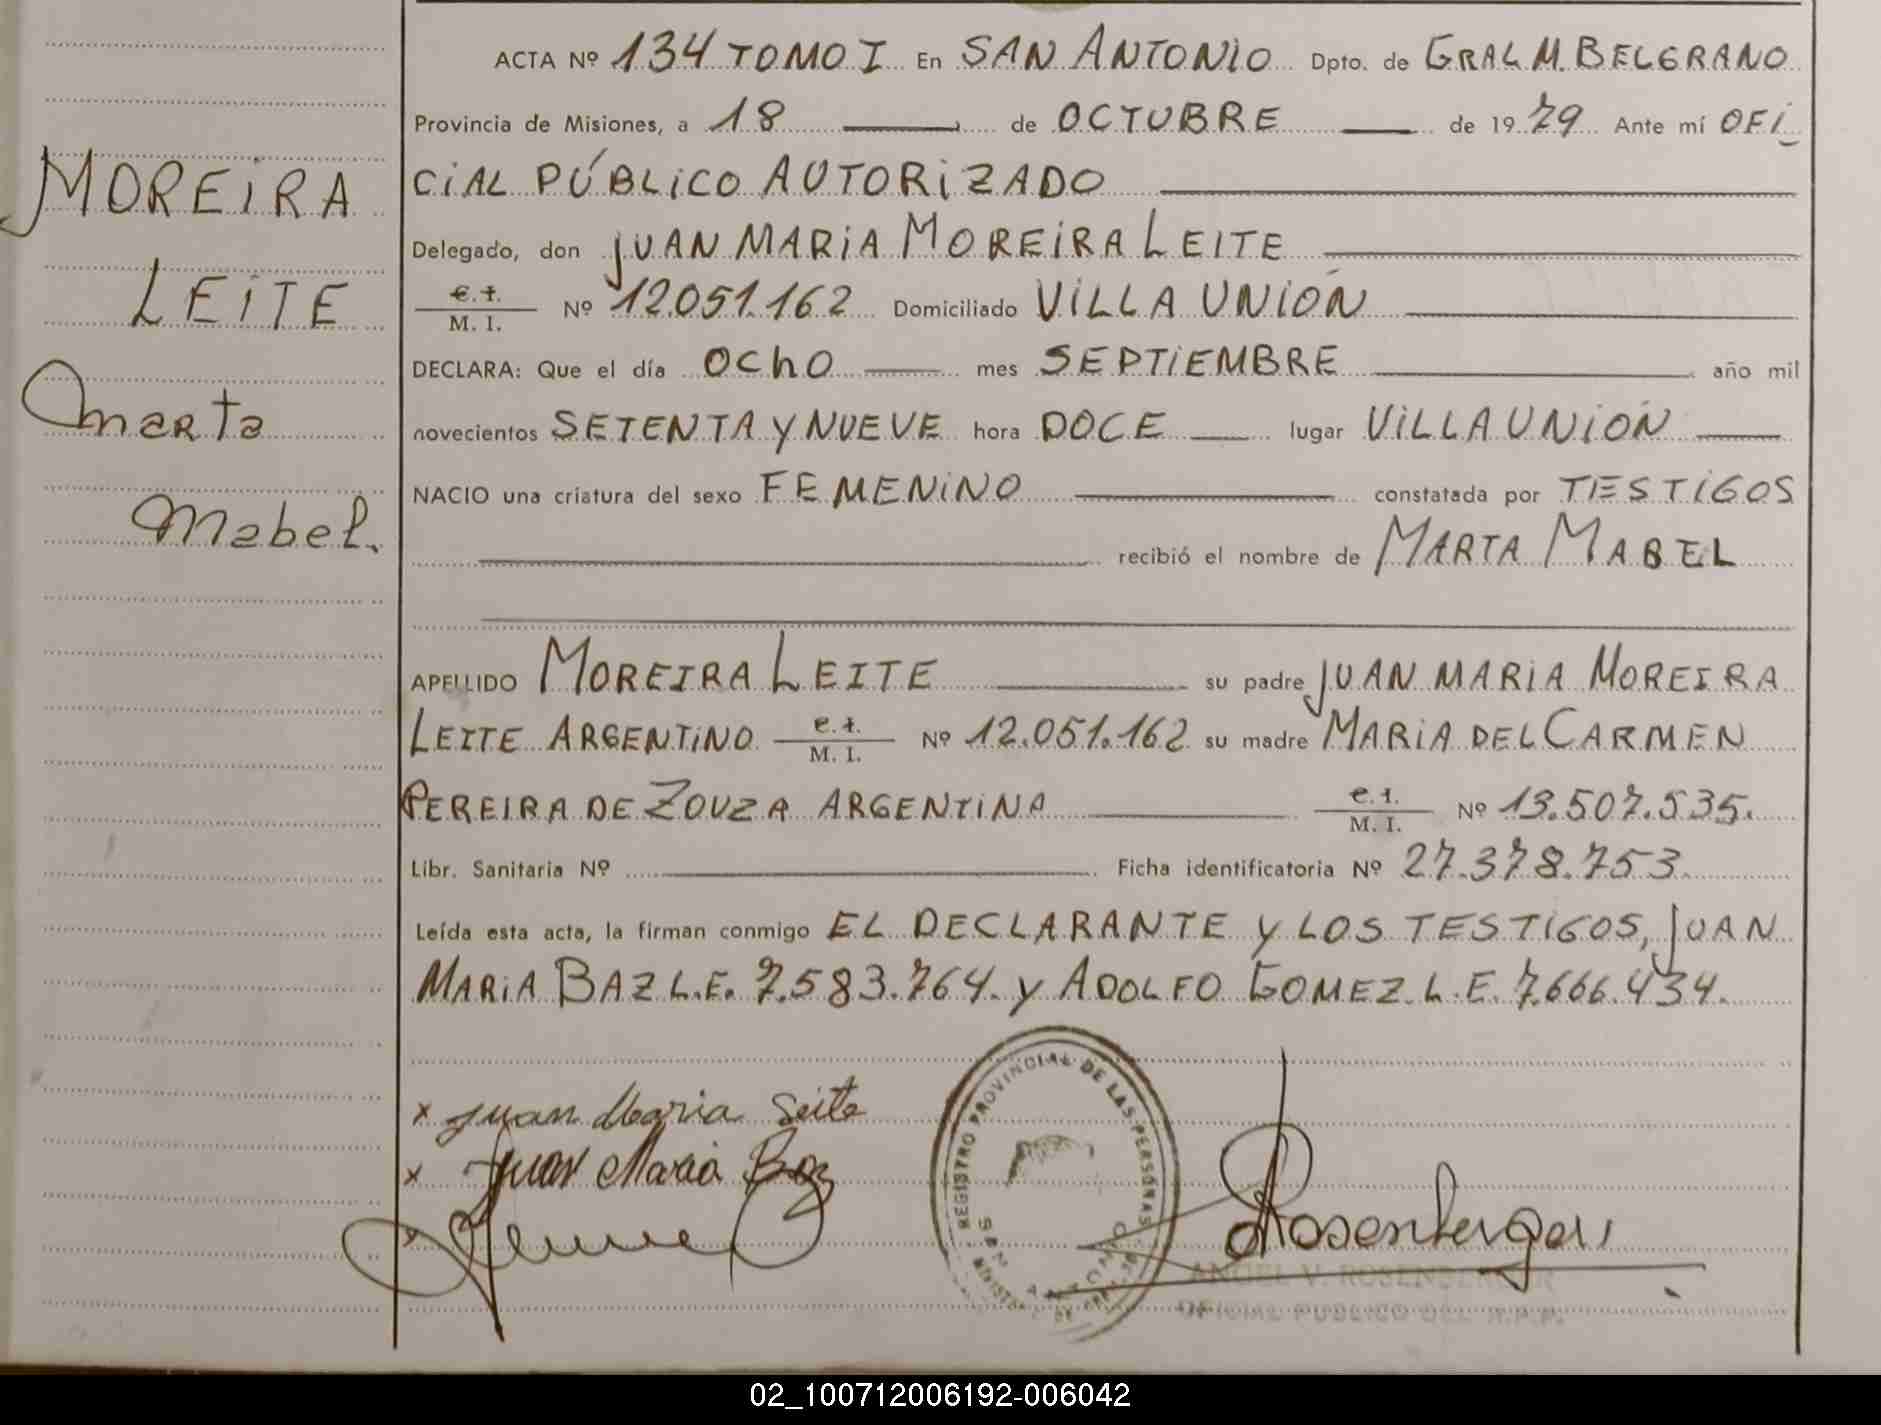 ACTA Nº 134 TOMO I En SAN ANTONIO Dpto. de GRAL M. BELGRANO
Provincia de Misiones, a 18 de OCTUBRE de 1979 Ante mí OFI
CIAL PÚBLICO AUTORIZADO
Delegado, don JUAN MARIA MOREIRA LEITE
C. I. M. I. Nº 12.051.162 Domiciliado VILLA UNIÓN
DECLARA: Que el día OCHO mes SEPTIEMBRE año mil
novecientos SETENTA Y NUEVE hora DOCE lugar VILLA UNIÓN
NACIO una criatura del sexo FEMENINO constatada por TESTIGOS
recibió el nombre de MARTA MABEL
APELLIDO MOREIRA LEITE su padre JUAN MARIA MOREIRA
LEITE ARGENTINO C. I. M. I. Nº 12.051.162 su madre MARIA DEL CARMEN
PEREIRA DE ZOUZA ARGENTINA C. I. M. I. Nº 13.507.535.
Libr. Sanitaria Nº Ficha identificatoria Nº 27.378.753.
Leída esta acta, la firman conmigo EL DECLARANTE Y LOS TESTIGOS, JUAN
MARIA BAZ L.E. 7.583.764. Y ADOLFO GOMEZ L.E. 7.666.434.
MOREIRA
LEITE
Marta
Mabel.
x Juan Maria Leite
x Juan Maria Baz
x
REGISTRO PROVINCIAL DE LAS PERSONAS
SAN ANTONIO
Rosenberger
ANGEL V. ROSENBERGER
OFICIAL PUBLICO DEL R.P.P.
02_100712006192-006042